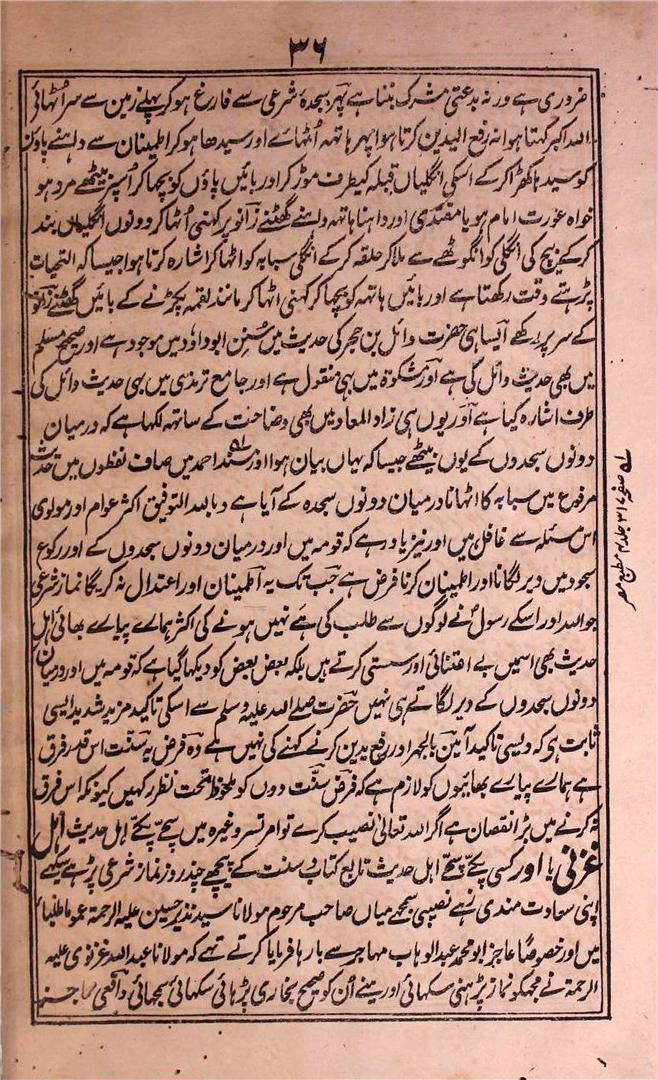 ۳۶
ضروری ہے ورنہ بدعتی مشرک بننا ہے پھر سجدۂ شرعی سے فارغ ہو کر پہلے زمین سے سر اُٹھائے
اللہ اکبر کہتا ہوا نہ رفع الیدین کرتا ہوا پھر ہاتھہ اُٹھائے اور سیدھا ہو کر اطمینان سے داہنے پاؤں
کو سیدہا کھڑا کر کے اسکی انگلیاں قبلہ کیطرف موڑ کر اور بائیں پاؤں کو بچھا کر اُسپر بیٹھے مرد ہو
خواہ عورت امام ہو یا مقتدی اور داہنا ہاتھہ داہنے گھٹنے زانو پر کہنی اٹھا کر دونوں انگلیاں بند
کر کے بیچ کی انگلی کو انگوٹھے سے ملا کر حلقہ کر کے انگلی سبابہ کو اٹھا کر اشارہ کرتا ہوا جیسا کہ التحیات
پڑہتے وقت رکھتا ہے اور بائیں ہاتھہ کو بچھا کر کہنی اٹھا کر مانند لقمہ پکڑنے کے بائیں گھٹنے زانو
کے سر پر رکھے ایسا ہی حضرت وائل بن حجر کی حدیث میں سُنن ابوداؤد میں موجود ہے اور صحیح مسلم
میں بھی حدیث وائل کی ہے اور مشکوۃ میں بہی منقول ہے اور جامع ترمذی میں بہی حدیث وائل کی
طرف اشارہ کیا ہے اور یوں ہی زاد المعاد میں بھی وضاحت کے ساتھہ لکھا ہے کہ درمیان
دونوں سجدوں کے یوں بیٹھے جیسا کہ یہاں بیان ہوا اور مسند احمد میں صاف لفظوں میں حدیث
مرفوع میں سبابہ کا اٹھانا درمیان دونوں سجدہ کے آیا ہے و باللہ التوفیق اکثر عوام اور مولوی
اس مسئلہ سے غافل ہیں اور نیز یاد رہے کہ قومہ میں اور درمیان دونوں سجدوں کے اور رکوع
سجود میں دیر لگانا اور اطمینان کرنا فرض ہے جب تک یہ اطمینان اور اعتدال نہ کریگا نماز شرعی
جو اللہ اور اسکے رسول نے لوگوں سے طلب کی ہے نہیں ہونے کی اکثر ہمارے پیارے بھائی اہل
حدیث بھی اسمیں بے اعتنائی اور سستی کرتے ہیں بلکہ بعض بعض کو دیکھا گیا ہے کہ قومہ میں اور درمیان
دونوں سجدوں کے دیر لگاتے ہی نہیں حضرت صلے اللہ علیہ وسلم سے اسکی تاکید مزید شدید ایسی
ثابت ہی کہ ویسی تاکید آمین بالجہر اور رفع یدین کرنے کہنے کی نہیں ہے وہ فرض یہ سنت اس قدر فرق
ہے ہمارے پیارے بھائیوں کو لازم ہے کہ فرض سنت دوں کو ملحوظ تحت نظر رکہیں کیونکہ اس فرق
نہ کرنے میں بڑا نقصان ہے اگر اللہ تعالیٰ نصیب کرے تو امرتسر وغیرہ میں سچے پکے اہل حدیث اہل
غزنی یا اور کسی پکے سچے اہل حدیث تابع کتاب و سنت کے پیچھے چند روز نماز شرعی پڑہے سیکھے
اپنی سعادت مندی زہے نصیبی سمجھے میاں صاحب مرحوم مولانا سید نذیر حسین علیہ الرحمۃ عموما طلباء
میں اور خصوصًا عاجز ابو محمد عبد الوہاب مہاجر سے بارہا فرمایا کرتے تھے کہ مولانا عبد اللہ غزنوی علیہ
الرحمۃ نے مجھکو نماز پڑہنی سکھائی اور مینے اُن کو صحیح بخاری پڑہائی سکھائی سمجھائی واقعی